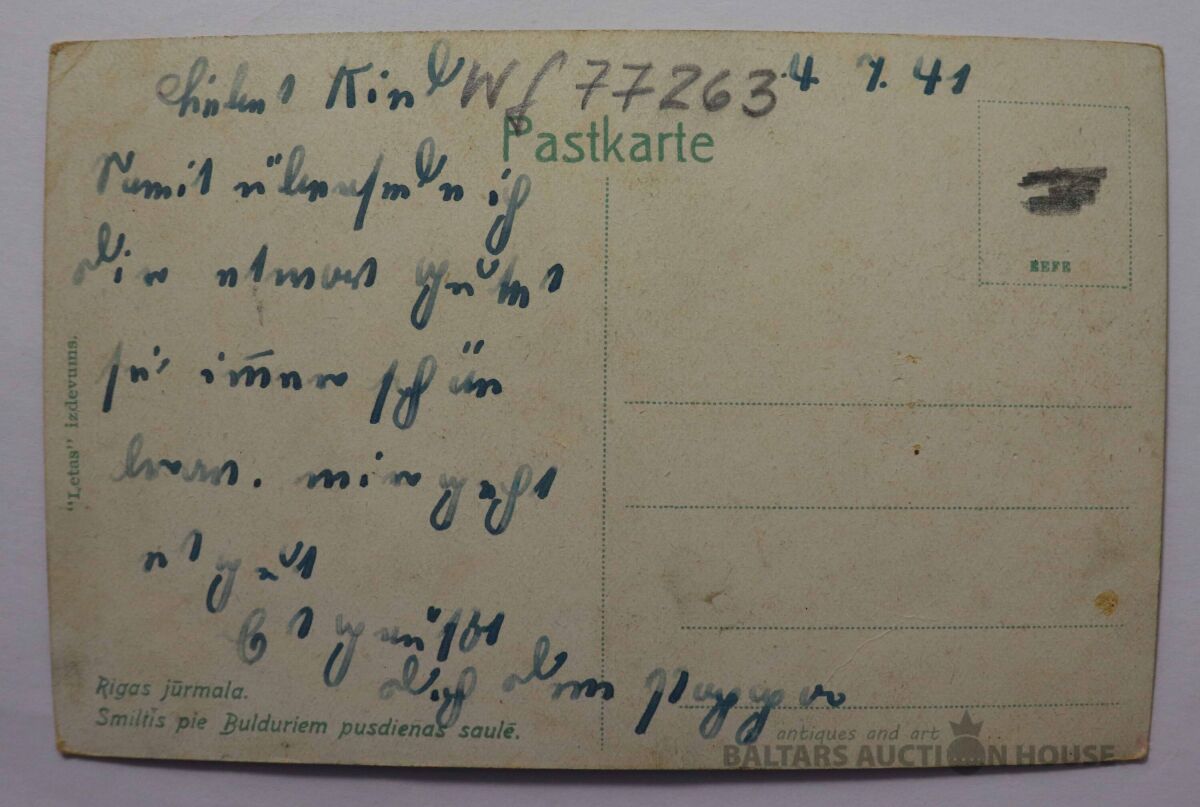 Liebes Kind 4 7. 41
Wf 77263
Pastkarte
Somit übersende ich
dir etwas gutes
sei immer schön
brav. mir geht
es gut
Es grüßt
dich dein
EEFE
"Letas" izdevums.
Rigas jūrmala.
Smiltis pie Bulduriem pusdienas saulē.
antiques and art
BALTARS AUCTION HOUSE